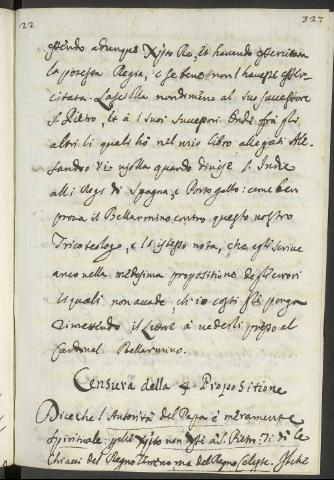 22 327
essendo adunque Xpto Re, et havendo essercitata
la potestà Regia, e se bene non l'havesse esser-
citata. Lasciolla nondimeno al suo successore
S. Pietro, et à i suoi successori. Onde frà gli
altri li quali hò nel mio libro allegati Ale-
sandro VI quando divise l'Indie
alli Regi di Spagna, e Portogallo: come ben
prova il Bellarmino contro questo nostro
Tricoteologo, e l'istesso nota, che egli scrive
anco nella medesima propositione degl'errori
li quali non accade, ch'io costì gli ponga
rimettendo il Lettore à vederli presso al
Cardinal Bellarmino.
Censura della 4 Propositione
Dice che l'Autorità del Papa è meramente
spirituale: perche Xpto non à S. Pietro: Ti dò le
Chiavi del Regno Terreno, ma del Regno Celeste.